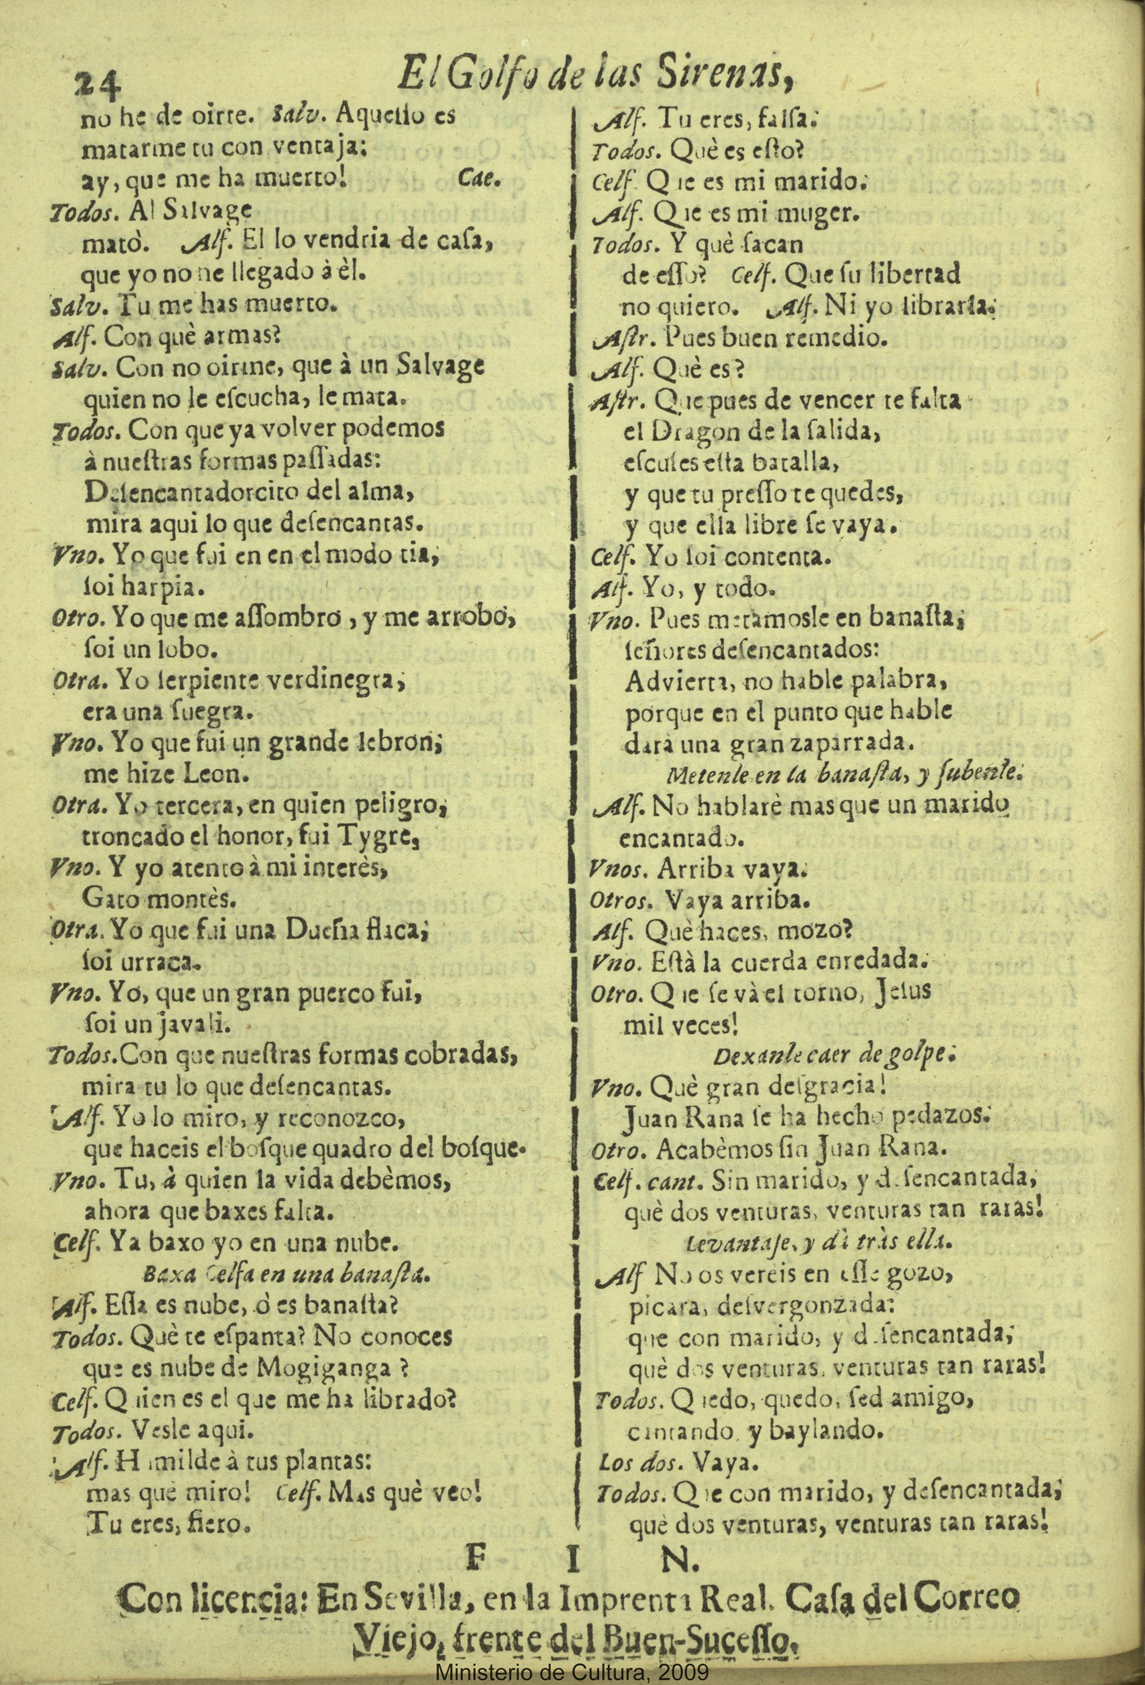 24
El Golfo de las Sirenas,
no he de oirte. Salv. Aquello es
matarme tu con ventaja:
ay, que me ha muerto! Cae.
Todos. Al Salvage
matò. Alf. El lo vendria de casa,
que yo no he llegado à èl.
Salv. Tu me has muerto.
Alf. Con què armas?
Salv. Con no oirme, que à un Salvage
quien no le escucha, le mata.
Todos. Con que ya volver podemos
à nuestras formas passadas:
Desencantadorcito del alma,
mira aqui lo que desencantas.
Vno. Yo que fui en en el modo tia,
soi harpia.
Otro. Yo que me assombro, y me arrobo,
soi un lobo.
Otra. Yo serpiente verdinegra,
era una suegra.
Vno. Yo que fui un grande lebron,
me hize Leon.
Otra. Yo tercera, en quien peligro,
troncado el honor, fui Tygre,
Vno. Y yo atento à mi interès,
Gato montès.
Otra. Yo que fui una Dueña flaca,
soi urraca.
Vno. Yo, que un gran puerco fui,
soi un javali.
Todos. Con que nuestras formas cobradas,
mira tu lo que desencantas.
Alf. Yo lo miro, y reconozco,
que haceis el bosque quadro del bosque.
Vno. Tu, à quien la vida debèmos,
ahora que baxes falta.
Celf. Ya baxo yo en una nube.
Baxa Celfa en una banasta.
Alf. Essa es nube, ò es banasta?
Todos. Què te espanta? No conoces
que es nube de Mogiganga?
Celf. Quien es el que me ha librado?
Todos. Vesle aqui.
Alf. Humilde à tus plantas:
mas què miro! Celf. Mas què veo!
Tu eres, fiero.
Alf. Tu eres, falsa.
Todos. Què es esto?
Celf. Que es mi marido.
Alf. Que es mi muger.
Todos. Y què sacan
de esso? Celf. Que su libertad
no quiero. Alf. Ni yo librarla.
Astr. Pues buen remedio.
Alf. Què es?
Astr. Que pues de vencer te falta
el Dragon de la salida,
escuses esta batalla,
y que tu presso te quedes,
y que ella libre se vaya.
Celf. Yo soi contenta.
Alf. Yo, y todo.
Vno. Pues metamosle en banasta,
señores desencantados:
Advierta, no hable palabra,
porque en el punto que hable
darà una gran zaparrada.
Metenle en la banasta, y subenle.
Alf. No hablarè mas que un marido
encantado.
Vnos. Arriba vaya.
Otros. Vaya arriba.
Alf. Què haces, mozo?
Vno. Està la cuerda enredada.
Otro. Que se và el torno, Jesus
mil veces!
Dexanle caer de golpe.
Vno. Què gran desgracia!
Juan Rana se ha hecho pedazos.
Otro. Acabèmos sin Juan Rana.
Celf. cant. Sin marido, y desencantada,
què dos venturas, venturas tan raras!
Levantase, y dà tràs ella.
Alf No os vereis en esse gozo,
picara, desvergonzada:
que con marido, y desencantada,
què dos venturas, venturas tan raras!
Todos. Quedo, quedo, sed amigo,
cantando, y baylando.
Los dos. Vaya.
Todos. Que con marido, y desencantada,
què dos venturas, venturas tan raras!
F I N.
Con licencia: En Sevilla, en la Imprenta Real, Casa del Correo
Viejo, frente del Buen-Sucesso.
Ministerio de Cultura, 2009